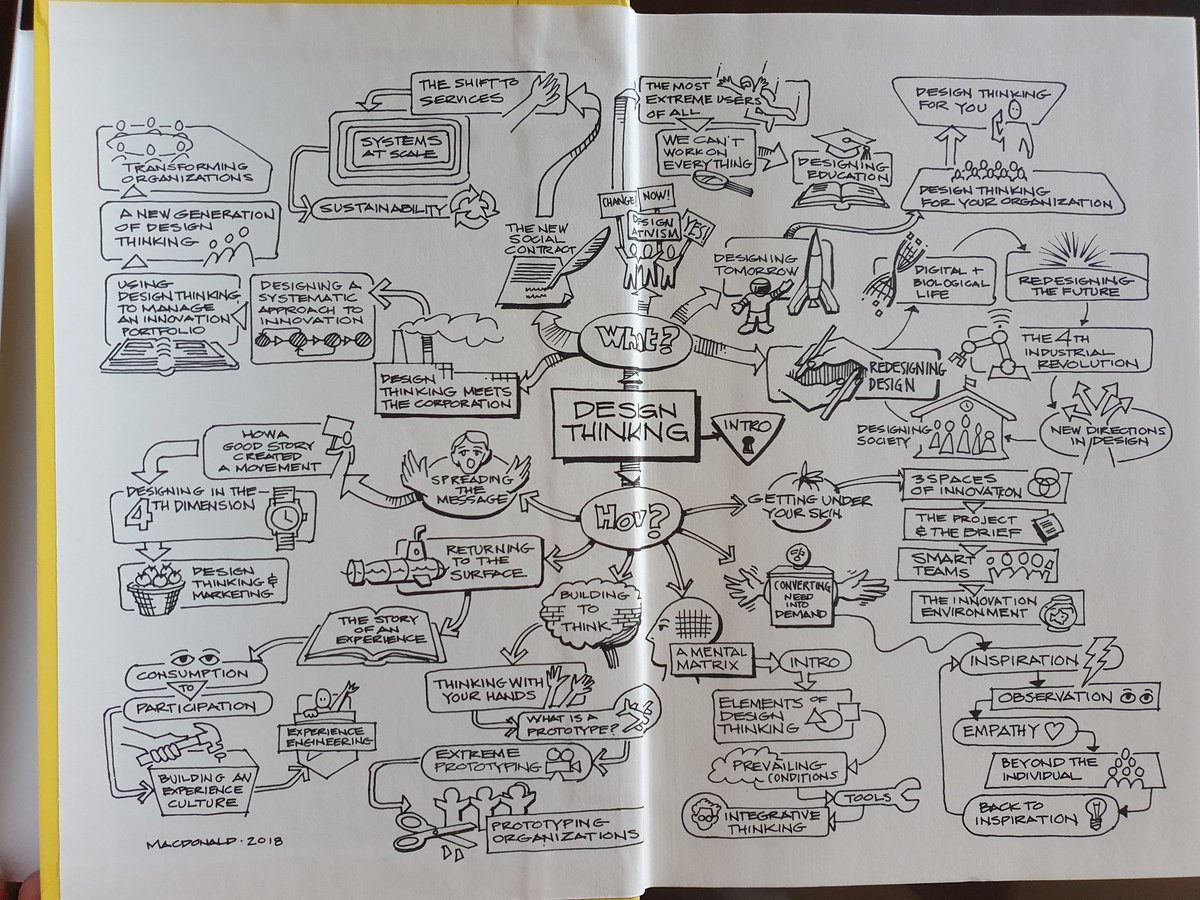 THE SHIFT TO
SERVICES
SYSTEMS
AT SCALE
SUSTAINABILITY
THE NEW
SOCIAL
CONTRACT
TRANSFORMING
ORGANIZATIONS
A NEW GENERATION
OF DESIGN
THINKING
USING
DESIGN THINKING
TO MANAGE
AN INNOVATION
PORTFOLIO
DESIGNING A
SYSTEMATIC
APPROACH TO
INNOVATION
DESIGN
THINKING MEETS
THE CORPORATION
THE MOST
EXTREME USERS
OF ALL
WE CAN'T
WORK ON
EVERYTHING
DESIGNING
EDUCATION
CHANGE
NOW!
DESIGN
ATIVISM
YES!
DESIGN THINKING
FOR YOU
DESIGN THINKING
FOR YOUR ORGANIZATION
DESIGNING
TOMORROW
DIGITAL +
BIOLOGICAL
LIFE
REDESIGNING
THE FUTURE
WHAT?
REDESIGNING
DESIGN
THE 4TH
INDUSTRIAL
REVOLUTION
DESIGNING
SOCIETY
NEW DIRECTIONS
IN DESIGN
DESIGN
THINKNG
INTRO
HOW A
GOOD STORY
CREATED
A MOVEMENT
SPREADING
THE
MESSAGE
DESIGNING IN THE
4TH DIMENSION
DESIGN
THINKING &
MARKETING
HOW?
GETTING UNDER
YOUR SKIN
3 SPACES
OF INNOVATION
THE PROJECT
& THE BRIEF
SMART
TEAMS
THE INNOVATION
ENVIRONMENT
RETURNING
TO THE
SURFACE
THE STORY
OF AN
EXPERIENCE
CONSUMPTION
TO
PARTICIPATION
BUILDING AN
EXPERIENCE
CULTURE
EXPERIENCE
ENGINEERING
BUILDING
TO
THINK
THINKING WITH
YOUR HANDS
WHAT IS A
PROTOTYPE?
EXTREME
PROTOTYPING
PROTOTYPING
ORGANIZATIONS
A MENTAL
MATRIX
INTRO
ELEMENTS OF
DESIGN
THINKING
PREVAILING
CONDITIONS
TOOLS
INTEGRATIVE
THINKING
CONVERTING
NEED
INTO
DEMAND
INSPIRATION
OBSERVATION
EMPATHY
BEYOND THE
INDIVIDUAL
BACK TO
INSPIRATION
MACDONALD · 2018